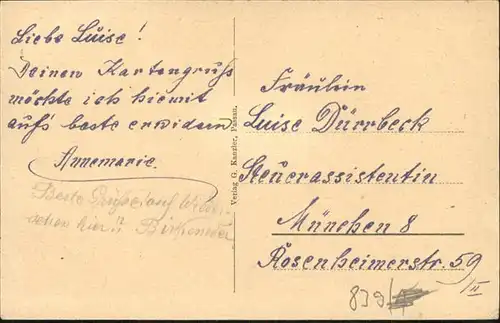 Liebe Luise!
Deinen Kartengruß
möchte ich hiemit
auf's beste erwidern
Annemarie.
Beste Grüße auf
schon hier!!
Verlag G. Kanzler, Passau.
Fräulein
Luise Dürrbeck
Steuerassistentin
München 8
Rosenheimerstr. 59/II
839